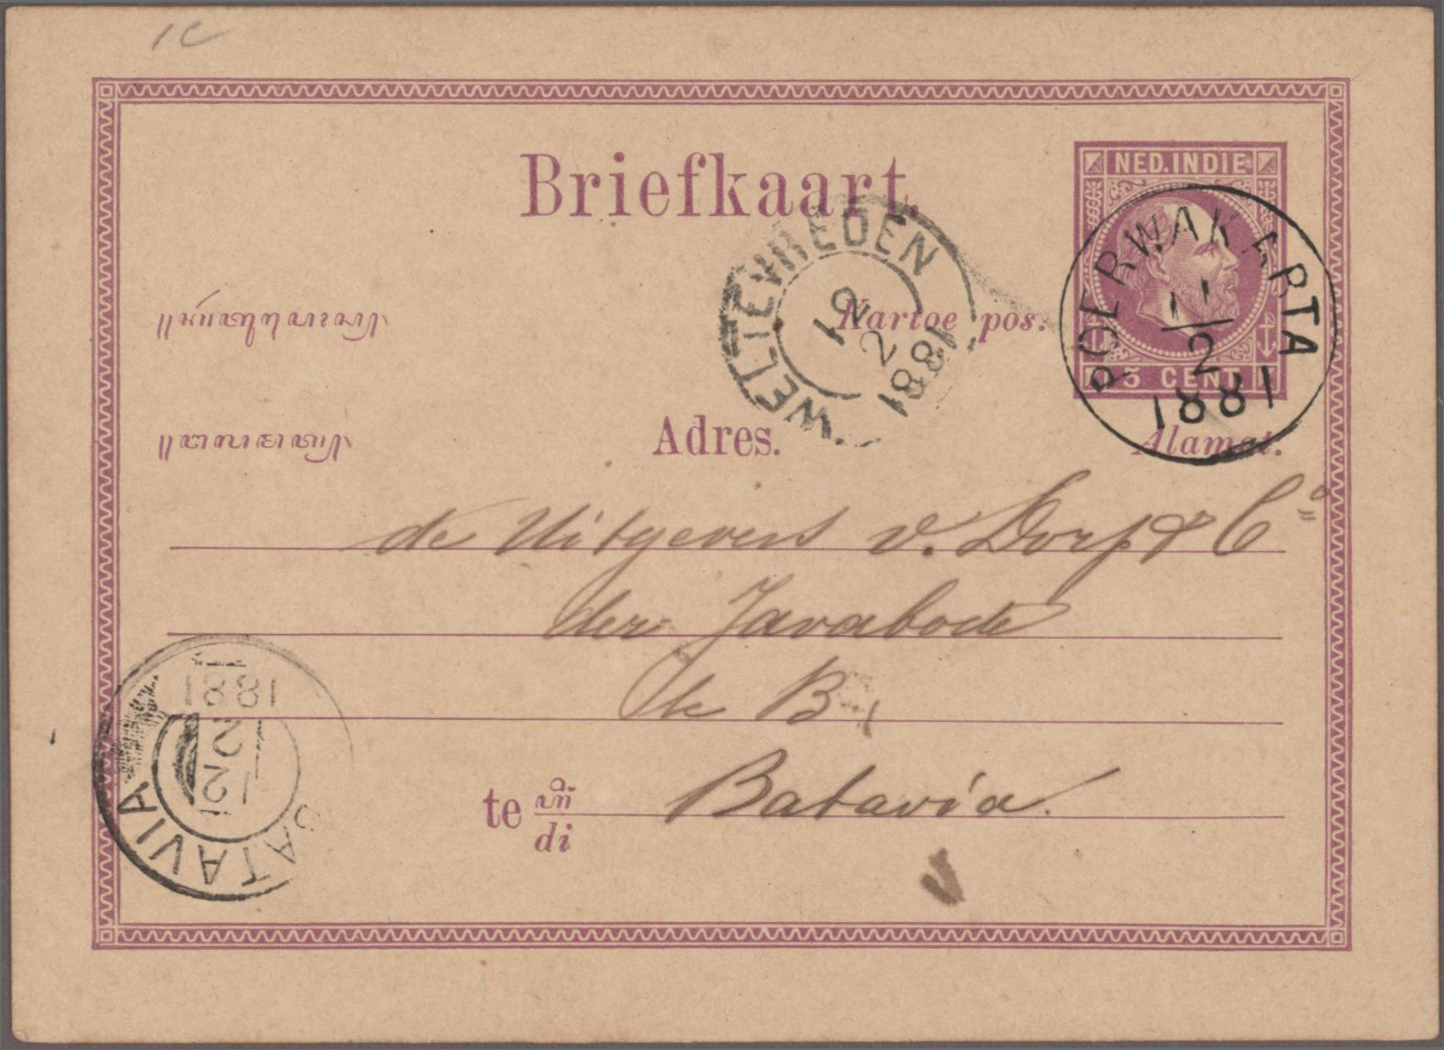 1C
Briefkaart.
NED. INDIE
5 CENT
POERWAKARTA
11/2
1881
WELTEVREDEN
12
2
1881
Kartoe pos.
Adres.
Alamat.
de Uitgevers v. Dorp & Co
der Javabode
te B
te
di
Batavia.
BATAVIA
1881